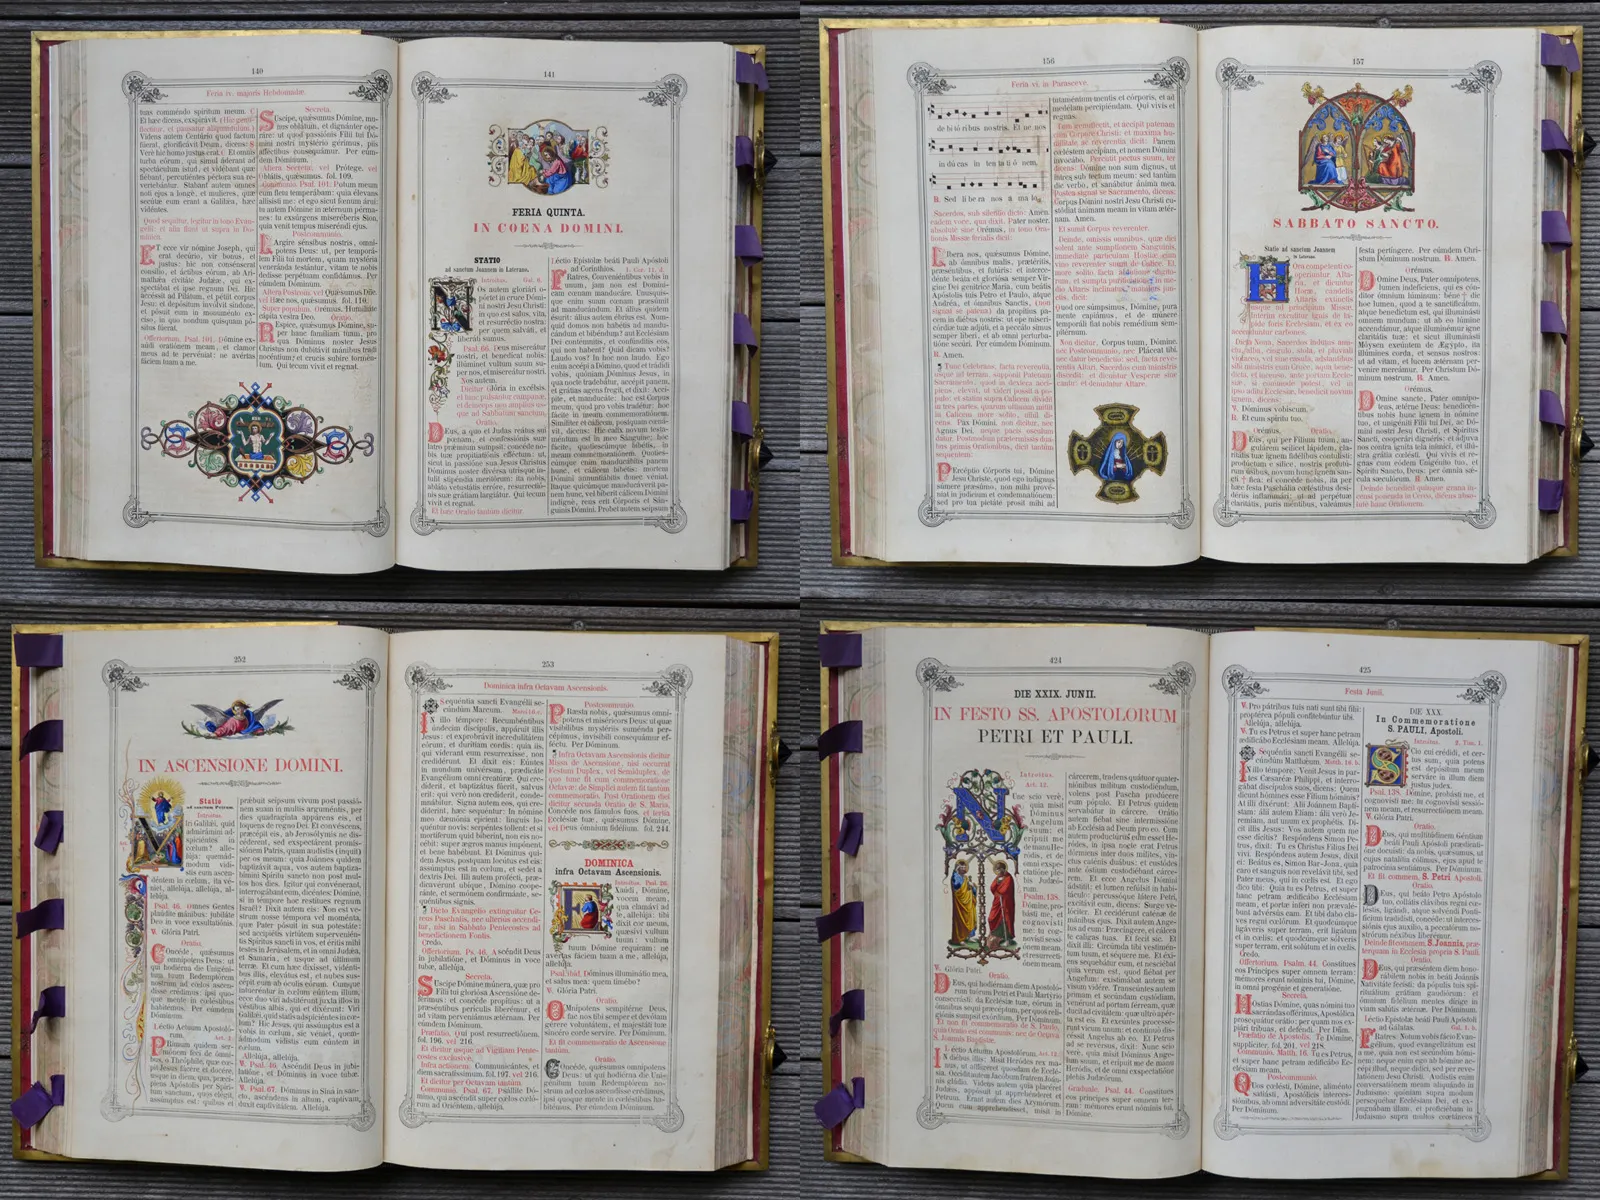 140
Feria iv. majoris Hebdomadæ.
tuas comméndo spíritum meum.
Et hæc dicens, exspirávit.
Videns autem Centúrio quod factum
fúerat, glorificávit Deum, dicens:
Vere hic homo justus erat. Et omnis
turba eórum, qui simul áderant ad
spectáculum istud, et vidébant quæ
fiébant, percutiéntes péctora sua re-
vertebántur. Stabant autem omnes
noti ejus a longe, et mulíeres, quæ
secútæ eum erant a Galilǽa, hæc
vidéntes.
Et ecce vir nómine Joseph, qui
erat decúrio, vir bonus, et
justus: hic non consénserat
consílio, et áctibus eórum, ab Ari-
mathǽa civitáte Judǽæ, qui ex-
spectábat et ipse regnum Dei. Hic
accéssit ad Pilátum, et pétiit corpus
Jesu: et depósitum invólvit síndone,
et pósuit eum in monuménto ex-
císo, in quo nondum quisquam pó-
situs fúerat.
Offertorium. Psal. 101. Dómine ex-
áudi oratiónem meam, et clamor
meus ad te pervéniat: ne avértas
fáciem tuam a me.
Secreta.
Súscipe, quǽsumus Dómine, mu-
nus oblátum, et dignánter ope-
ráre: ut quod passiónis Fílii tui Dó-
mini nostri mystério gérimus, piis
afféctibus consequámur. Per eúm-
dem Dóminum.
Altera Secreta, vel Prótege. vel
Oblátis, quǽsumus. fol. 109.
Communio. Psal. 101. Potum meum
cum fletu temperábam: quia élevans
allisísti me: et ego sicut fœnum árui:
tu autem Dómine in ætérnum pérma-
nes: tu exsúrgens miseréberis Sion,
quia venit tempus miseréndi ejus.
Postcommunio.
Largíre sénsibus nostris, omní-
potens Deus: ut, per temporá-
lem Fílii tui mortem, quam mystéria
veneránda testántur, vitam te nobis
dedísse perpétuam confidámus. Per
eúmdem Dóminum.
Altera Postcom. vel Quǽsumus Dñe.
vel Hæc nos, quǽsumus. fol. 110.
Super populum. Orémus. Humiliáte
cápita vestra Deo. Oratio.
Réspice, quǽsumus Dómine, su-
per hanc famíliam tuam, pro
qua Dóminus noster Jesus
Christus non dubitávit mánibus tradi
nocéntium, et crucis subíre tormén-
tum. Qui tecum vivit et regnat.
141
FERIA QUINTA.
IN COENA DOMINI.
STATIO
ad sanctum Joannem in Laterano.
Introitus. Gal. 6.
Nos autem gloriári o-
pórtet in cruce Dómi-
ni nostri Jesu Christi:
in quo est salus, vita,
et resurréctio nostra:
per quem salváti, et
liberáti sumus.
Psal. 66. Deus misereátur
nostri, et benedícat nobis:
illúminet vultum suum su-
per nos, et misereátur nostri.
Nos autem.
Dicitur Glória in excélsis,
et hac pulsantur campanæ,
et deinceps non amplius us-
que ad Sabbatum sanctum.
Oratio.
Deus, a quo et Judas reátus sui
pœnam, et confessiónis suæ
latro prǽmium sumpsit: concéde no-
bis tuæ propitiatiónis efféctum: ut,
sicut in passióne sua Jesus Christus
Dóminus noster divérsa utrísque in-
tulit stipéndia meritórum: ita nobis,
abláto vetustátis erróre, resurrectió-
nis suæ grátiam largiátur. Qui tecum
vivit et regnat.
Et hæc Oratio tantum dicitur.
Léctio Epístolæ beáti Pauli Apóstoli
ad Corínthios. 1. Cor. 11. d.
Fratres. Conveniéntibus vobis in
unum, jam non est Domíni-
cam cœnam manducáre. Unusquís-
que enim suam cœnam præsúmit
ad manducándum. Et álius quidem
ésurit: álius autem ébrius est. Num-
quid domos non habétis ad mandu-
cándum et bibéndum? aut Ecclésiam
Dei contémnitis, et confúnditis eos,
qui non habent? Quid dicam vobis?
Laudo vos? In hoc non laudo. Ego
enim accépi a Dómino, quod et trádidi
vobis, quóniam Dóminus Jesus, in
qua nocte tradebátur, accépit panem,
et grátias agens fregit, et dixit: Accí-
pite, et manducáte: hoc est Corpus
meum, quod pro vobis tradétur: hoc
fácite in meam commemoratiónem.
Simíliter et cálicem, postquam cœná-
vit, dicens: Hic calix novum testa-
méntum est in meo Sánguine: hoc
fácite, quotiescúmque bibétis, in
meam commemoratiónem. Quoties-
cúmque enim manducábitis panem
hunc, et cálicem bibétis: mortem
Dómini annuntiábitis donec véniat.
Itaque quicúmque manducáverit pa-
nem hunc, vel bíberit cálicem Dómini
indígne, reus erit Córporis et Sán-
guinis Dómini. Probet autem seípsum
156
Feria vi. in Parasceve.
de bi tó ri bus no stris. Et ne nos
in dú cas in ten ta ti ó nem,
R. Sed lí be ra nos a ma lo.
Líbera nos, quǽsumus Dómine,
ab ómnibus malis, prætéritis,
præséntibus, et futúris: et interce-
dénte beáta et gloriósa semper Vír-
gine Dei genitríce María, cum beátis
Apóstolis tuis Petro et Paulo, atque
Andréa, et ómnibus Sanctis, (non
signat se patena) da propítius pa-
cem in diébus nostris: ut ope miseri-
córdiæ tuæ adjúti, et a peccáto simus
semper líberi, et ab omni perturba-
tióne secúri. Per eúmdem Dóminum.
R. Amen.
Percéptio Córporis tui, Dómine
Jesu Christe, quod ego indígnus
súmere præsúmo, non mihi prové-
niat in judícium et condemnatiónem:
sed pro tua pietáte prosit mihi ad
tutaméntum mentis et córporis, et ad
medélam percipiéndam. Qui vivis et
regnas.
Panem
cœléstem accípiam, et nomen Dómini
invocábo.
Dómine non sum dignus, ut
intres sub tectum meum: sed tantum
dic verbo, et sanábitur ánima mea.
Postea signat se Sacramento, dicens:
Corpus Dómini nostri Jesu Christi cu-
stódiat ánimam meam in vitam ætér-
nam. Amen.
Et sumit Corpus reverenter.
Quod ore súmpsimus, Dómine, pura
mente capiámus, et de múnere
temporáli fiat nobis remédium sem-
pitérnum.
157
SABBATO SANCTO.
Statio ad sanctum Joannem
in Laterano.
V. Dóminus vobíscum.
R. Et cum spíritu tuo.
Orémus. Oratio.
Deus, qui per Fílium tuum, an-
gulárem scílicet lápidem, cla-
ritátis tuæ ignem fidélibus contulísti:
prodúctum e sílice, nostris profutú-
rum úsibus, novum hunc ignem san-
ctí†fica: et concéde nobis, ita per
hæc festa Paschália cœléstibus desi-
dériis inflammári: ut ad perpétuæ
claritátis, puris méntibus, valeámus
festa pertíngere. Per eúmdem Chri-
stum Dóminum nostrum. R. Amen.
Orémus.
Dómine Deus, Pater omnípotens,
lumen indefíciens, qui es cón-
ditor ómnium lúminum: béne†dic
hoc lumen, quod a te sanctificátum,
atque benedíctum est, qui illuminásti
omnem mundum: ut ab eo lúmine
accendámur, atque illuminémur igne
claritátis tuæ: et sicut illuminásti
Móysen exeúntem de Ægýpto, ita
illúmines corda, et sensus nostros:
ut ad vitam, et lucem ætérnam per-
veníre mereámur. Per Christum Dó-
minum nostrum. R. Amen.
Orémus.
Dómine sancte, Pater omnípo-
tens, ætérne Deus: benedicén-
tibus nobis hunc ignem in nómine
tuo, et unigéniti Fílii tui Dei, ac Dó-
mini nostri Jesu Christi, et Spíritus
Sancti, cooperári dignéris: et ádjuva
nos contra igníta tela inimíci, et illú-
stra grátia cœlésti. Qui vivis et re-
gnas cum eódem Unigénito tuo, et
Spíritu Sancto, Deus: per ómnia sǽ-
cula sæculórum. R. Amen.
252
IN ASCENSIONE DOMINI.
Statio
ad sanctum Petrum.
Introitus.
Viri Galilǽi, quid
admirámini ad-
spiciéntes in
cœlum? alle-
lúja: quemád-
modum vidí-
stis eum ascen-
déntem in cœlum, ita vé-
niet, allelúja, allelúja, al-
lelúja.
Psal. 46. Omnes Gentes
pláudite mánibus: jubiláte
Deo in voce exsultatiónis.
V. Glória Patri.
Oratio.
Concéde, quǽsumus
omnípotens Deus: ut
qui hodiérna die Unigéni-
tum tuum Redemptórem
nostrum ad cœlos ascen-
dísse crédimus: ipsi quo-
que mente in cœléstibus
habitémus. Per eúmdem
Dóminum.
Léctio Actuum Apostoló-
rum. Act. 1.
Primum quidem ser-
mónem feci de ómni-
bus, o Theóphile, quæ cœ-
pit Jesus fácere et docére,
usque in diem, qua, præcí-
piens Apóstolis per Spíri-
tum Sanctum, quos elégit,
assúmptus est: quibus et
prǽbuit seípsum vivum post passió-
nem suam in multis arguméntis, per
dies quadragínta appárens eis, et
loquens de regno Dei. Et convéscens,
præcépit eis, ab Jerosólymis ne dis-
céderent, sed exspectárent promissi-
ónem Patris, quam audístis (inquit)
per os meum: quia Joánnes quidem
baptizávit aqua, vos autem baptizabí-
mini Spíritu sancto non post multos
hos dies. Ígitur qui convénerant,
interrogábant eum, dicéntes: Dómine,
si in témpore hoc restítues regnum
Israël? Dixit autem eis: Non est ve-
strum nosse témpora vel moménta,
quæ Pater pósuit in sua potestáte:
sed accipiétis virtútem supervenién-
tis Spíritus sancti in vos, et éritis mihi
testes in Jerúsalem, et in omni Judǽa,
et Samaría, et usque ad últimum
terræ. Et cum hæc dixísset, vidénti-
bus illis, elevátus est, et nubes sus-
cépit eum ab óculis eórum. Cumque
intueréntur in cœlum eúntem illum,
ecce duo viri adstitérunt juxta illos in
véstibus albis, qui et dixérunt: Viri
Galilǽi, quid statis adspiciéntes in cœ-
lum? Hic Jesus, qui assúmptus est a
vobis in cœlum, sic véniet, quem-
ádmodum vidístis eum eúntem in
cœlum.
Allelúja, allelúja.
V. Psal. 46. Ascéndit Deus in jubi-
latióne, et Dóminus in voce tubæ.
Allelúja.
V. Psal. 67. Dóminus in Sina in san-
cto, ascéndens in altum, captívam
duxit captivitátem. Allelúja.
253
Dominica infra Octavam Ascensionis.
Sequéntia sancti Evangélii se-
cúndum Marcum. Marci 16. c.
In illo témpore: Recumbéntibus
úndecim discípulis, appáruit illis
Jesus: et exprobrávit incredulitátem
eórum, et durítiam cordis: quia iis,
qui víderant eum resurrexísse, non
credidérunt. Et dixit eis: Eúntes
in mundum univérsum, prædicáte
Evangélium omni creatúræ. Qui cre-
díderit, et baptizátus fúerit, salvus
erit: qui vero non credíderit, conde-
mnábitur. Signa autem eos, qui cre-
díderint, hæc sequéntur: In nómine
meo dæmónia ejícient: linguis lo-
quéntur novis: serpéntes tollent: et si
mortíferum quid bíberint, non eis no-
cébit: super ægros manus impónent,
et bene habébunt. Et Dóminus qui-
dem Jesus, postquam locútus est eis:
assúmptus est in cœlum, et sedet a
dextris Dei. Illi autem profécti, præ-
dicavérunt ubíque, Dómino coope-
ránte, et sermónem confirmánte, se-
quéntibus signis.
Dicto Evangelio extinguitur Ce-
reus Paschalis, nec ulterius accendi-
tur, nisi in Sabbato Pentecostes ad
benedictionem Fontis.
Credo.
Offertorium. Ps. 46. Ascéndit Deus
in jubilatióne, et Dóminus in voce
tubæ, allelúja.
Secreta.
Súscipe Dómine múnera, quæ pro
Fílii tui gloriósa Ascensióne dé-
ferimus: et concéde propítius: ut a
præséntibus perículis liberémur, et
ad vitam perveniámus ætérnam. Per
eúmdem Dóminum.
Præfatio, Qui post resurrectiónem.
fol. 196. vel 216.
Et dicitur usque ad Vigiliam Pente-
costes exclusive.
Infra actionem: Communicántes, et
diem sacratíssimum. fol. 197. vel 216.
Et dicitur per Octavam tantum.
Communio. Psal. 67. Psállite Dó-
mino, qui ascéndit super cœlos cœló-
rum ad Oriéntem, allelúja.
Postcommunio
Præsta nobis, quǽsumus omní-
potens et miséricors Deus: ut quæ
visibílibus mystériis suménda per-
cépimus, invisíbili consequámur ef-
féctu. Per Dóminum.
Infra Octavam Ascensionis dicitur
Missa de Ascensione, nisi occurrat
Festum Duplex, vel Semiduplex, de
quo tunc fit cum commemoratione
Octavæ: de Simplici autem fit tantum
commemoratio. Post Orationem diei
dicitur secunda Oratio de S. Maria,
Concéde nos fámulos tuos. et tertia
Ecclésiæ tuæ, quǽsumus Dómine.
vel Deus ómnium fidélium. fol. 244.
DOMINICA
infra Octavam Ascensionis.
Introitus. Psal. 26.
Exáudi, Dómine,
vocem meam,
qua clamávi ad
te, allelúja: tibi
dixit cor meum,
quæsívi vultum
tuum: vultum
tuum Dómine requíram: ne
avértas fáciem tuam a me, allelúja,
allelúja.
Psal. ibid. Dóminus illuminátio mea,
et salus mea: quem timébo?
V. Glória Patri.
Oratio.
Omnípotens sempitérne Deus,
fac nos tibi semper et devótam
gérere voluntátem, et majestáti tuæ
sincéro corde servíre. Per Dóminum.
Et fit commemoratio de Ascensione
tantum.
Oratio.
Concéde, quǽsumus omnípotens
Deus: ut qui hodiérna die Uni-
génitum tuum Redemptórem no-
strum ad cœlos ascendísse crédimus:
ipsi quoque mente in cœléstibus ha-
bitémus. Per eúmdem Dóminum.
424
DIE XXIX. JUNII.
IN FESTO SS. APOSTOLORUM
PETRI ET PAULI.
Introitus.
Act. 12.
Nunc scio vere,
quia misit
Dóminus
Angelum
suum: et
erípuit me
de manu He-
ródis, et de
omni exspe-
ctatióne ple-
bis Judæó-
rum.
Psalm. 138.
Dómine, pro-
básti me, et
cognovísti
me: tu co-
gnovísti ses-
siónem meam,
et resurrecti-
ónem meam.
V. Glória Patri. Oratio.
Deus, qui hodiérnam diem Apostoló-
rum tuórum Petri et Pauli Martýrio
consecrásti: da Ecclésiæ tuæ, eórum in
ómnibus sequi præcéptum, per quos reli-
giónis sumpsit exórdium. Per Dóminum.
Et non fit commemoratio de S. Paulo,
quacumque Oratio tantum; nec de Octava
S. Joannis Baptistæ.
Léctio Actuum Apostolórum. Act. 12.
In diébus illis: Misit Heródes rex ma-
nus, ut afflígeret quosdam de Ecclésia.
Occídit autem Jacóbum fratrem Joán-
nis gládio. Videns autem quia placéret
Judǽis, appósuit ut apprehénderet et
Petrum. Erant autem dies Azymórum.
Quem cum apprehendísset, misit in
cárcerem, tradens quátuor quater-
niónibus mílitum custodiéndum,
volens post Pascha prodúcere
eum pópulo. Et Petrus quidem
servabátur in cárcere. Orátio
autem fiébat sine intermissióne
ab Ecclésia ad Deum pro eo. Cum
autem productúrus eum esset He-
ródes, in ipsa nocte erat Petrus
dórmiens inter duos mílites, vin-
ctus caténis duábus: et custódes
ante óstium custodiébant cárcer-
em. Et ecce Angelus Dómini
ádstitit: et lumen refúlsit in habi-
táculo: percussóque látere Petri,
excitávit eum, dicens: Surge ve-
lóciter. Et cecidérunt caténæ de
mánibus ejus. Dixit autem Ange-
lus ad eum: Præcíngere, et cálcea
te cáligas tuas. Et fecit sic. Et
dixit illi: Circúmda tibi vestimén-
tum tuum, et séquere me. Et éxi-
ens, sequebátur eum, et nesciébat
quia verum est, quod fiébat per
Angelum: existimábat autem se
visum vidére. Transeúntes autem
primam et secúndam custódiam,
venérunt ad portam férream, quæ
ducit ad civitátem: quæ ultro apér-
ta est eis. Et exeúntes processé-
runt vicum unum: et contínuo dis-
céssit Angelus ab eo. Et Petrus
ad se revérsus, dixit: Nunc scio
vere, quia misit Dóminus Ange-
lum suum, et erípuit me de manu
Heródis, et de omni exspectatióne
plebis Judæórum.
Graduale. Psal. 44. Constítues
eos príncipes super omnem ter-
ram: mémores erunt nóminis tui,
Dómine.
425
Festa Junii.
V. Pro pátribus tuis nati sunt tibi fílii:
proptérea pópuli confitebúntur tibi.
Allelúja, allelúja.
V. Tu es Petrus, et super hanc petram
ædificábo Ecclésiam meam. Allelúja.
Sequéntia sancti Evangélii se-
cúndum Matthǽum. Matth. 16. b.
In illo témpore: Venit Jesus in par-
tes Cæsaréæ Philíppi, et interro-
gábat discípulos suos, dicens: Quem
dicunt hómines esse Fílium hóminis?
At illi dixérunt: Alii Joánnem Baptí-
stam: álii autem Elíam: álii vero Jere-
míam, aut unum ex prophétis. Di-
cit illis Jesus: Vos autem quem me
esse dícitis? Respóndens Simon Pe-
trus, dixit: Tu es Christus Fílius Dei
vivi. Respóndens autem Jesus, dixit
ei: Beátus es, Simon Bar-Jona, quia
caro et sanguis non revelávit tibi, sed
Pater meus, qui in cœlis est. Et ego
dico tibi: Quia tu es Petrus, et super
hanc petram ædificábo Ecclésiam
meam, et portæ ínferi non prævalé-
bunt advérsus eam. Et tibi dabo cla-
ves regni cœlórum. Et quodcúmque
ligáveris super terram, erit ligátum
et in cœlis: et quodcúmque sólveris
super terram, erit solútum et in cœlis.
Credo.
Offertorium. Psalm. 44. Constítues
eos Príncipes super omnem terram:
mémores erunt nóminis tui, in omni
progénie et generatióne.
Secreta.
Hóstias Dómine, quas nómini tuo
sacrándas offérimus, Apostólica
prosequátur orátio: per quam nos ex-
piári tríbuas, et deféndi. Per Dñm.
Præfatio de Apostolis. Te Dómine,
supplíciter. fol. 201. vel 218.
Communio. Matth. 16. Tu es Petrus,
et super hanc petram ædificábo Ec-
clésiam meam.
Postcommunio
Quos cœlésti, Dómine, aliménto
satiásti, Apostólicis intercessi-
ónibus, ab omni adversitáte custódi.
Per Dóminum.
DIE XXX.
In Commemoratione
S. PAULI, Apostoli.
Introitus. 2. Tim. 1.
Scio cui crédidi, et cer-
tus sum, quia potens
est depósitum meum
serváre in illum diem
justus judex.
Psal. 138. Dómine, probásti me, et
cognovísti me: tu cognovísti sessió-
nem meam, et resurrectiónem meam.
V. Glória Patri.
Oratio.
Deus, qui multitúdinem Géntium
beáti Pauli Apóstoli prædicati-
óne docuísti: da nobis, quǽsumus, ut,
cujus natalítia cólimus, ejus apud te
patrocínia sentiámus. Per Dóminum.
Et fit commem. S. Petri Apostoli.
Oratio.
Deus, qui beáto Petro Apóstolo
tuo, collátis clávibus regni cœ-
léstis, ligándi, atque solvéndi Pontifí-
cium tradidísti: concéde; ut interces-
siónis ejus auxílio, a peccatórum no-
strórum néxibus liberémur.
Deinde fit commem. S. Joannis, præ-
terquam in Ecclesia propria S. Pauli.
Oratio.
Deus, qui præséntem diem hono-
rábilem nobis in beáti Joánnis
Nativitáte fecísti: da pópulis tuis spi-
rituálium grátiam gaudiórum: et
ómnium fidélium mentes dírige in
viam salútis ætérnæ. Per Dóminum.
Léctio Epístolæ beáti Pauli Apóstoli
ad Gálatas. Gal. 1. b.
Fratres. Notum vobis fácio Evan-
gélium, quod evangelizátum est
a me, quia non est secúndum hómi-
nem: neque enim ego ab hómine ac-
cépi illud, neque dídici, sed per reve-
latiónem Jesu Christi. Audístis enim
conversatiónem meam aliquándo in
Judaísmo: quóniam supra modum
persequébar Ecclésiam Dei, et ex-
pugnábam illam, et proficiébam in
Judaísmo supra multos coætáneos